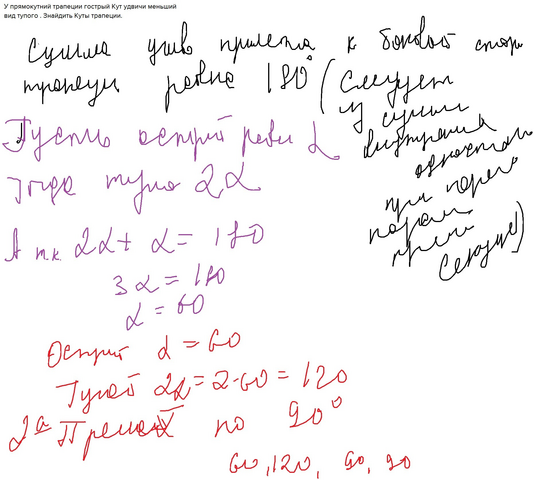 У прямокутний трапеции гострый Кут удвичи меньший
вид тупого . Знайдить Куты трапеции.
Сумма углов прилега к боковой стор
трапеции равна 180° (Следует
из суммы
внутрених
односторон
при
парал
Секущей)
Пусть острый равен α
Тогда тупой 2α
А тк 2α + α = 180
3α = 180
α = 60
Острий α = 60
Тупой 2α = 2·60 = 120
2а Прямой по 90°
60, 120, 90, 90